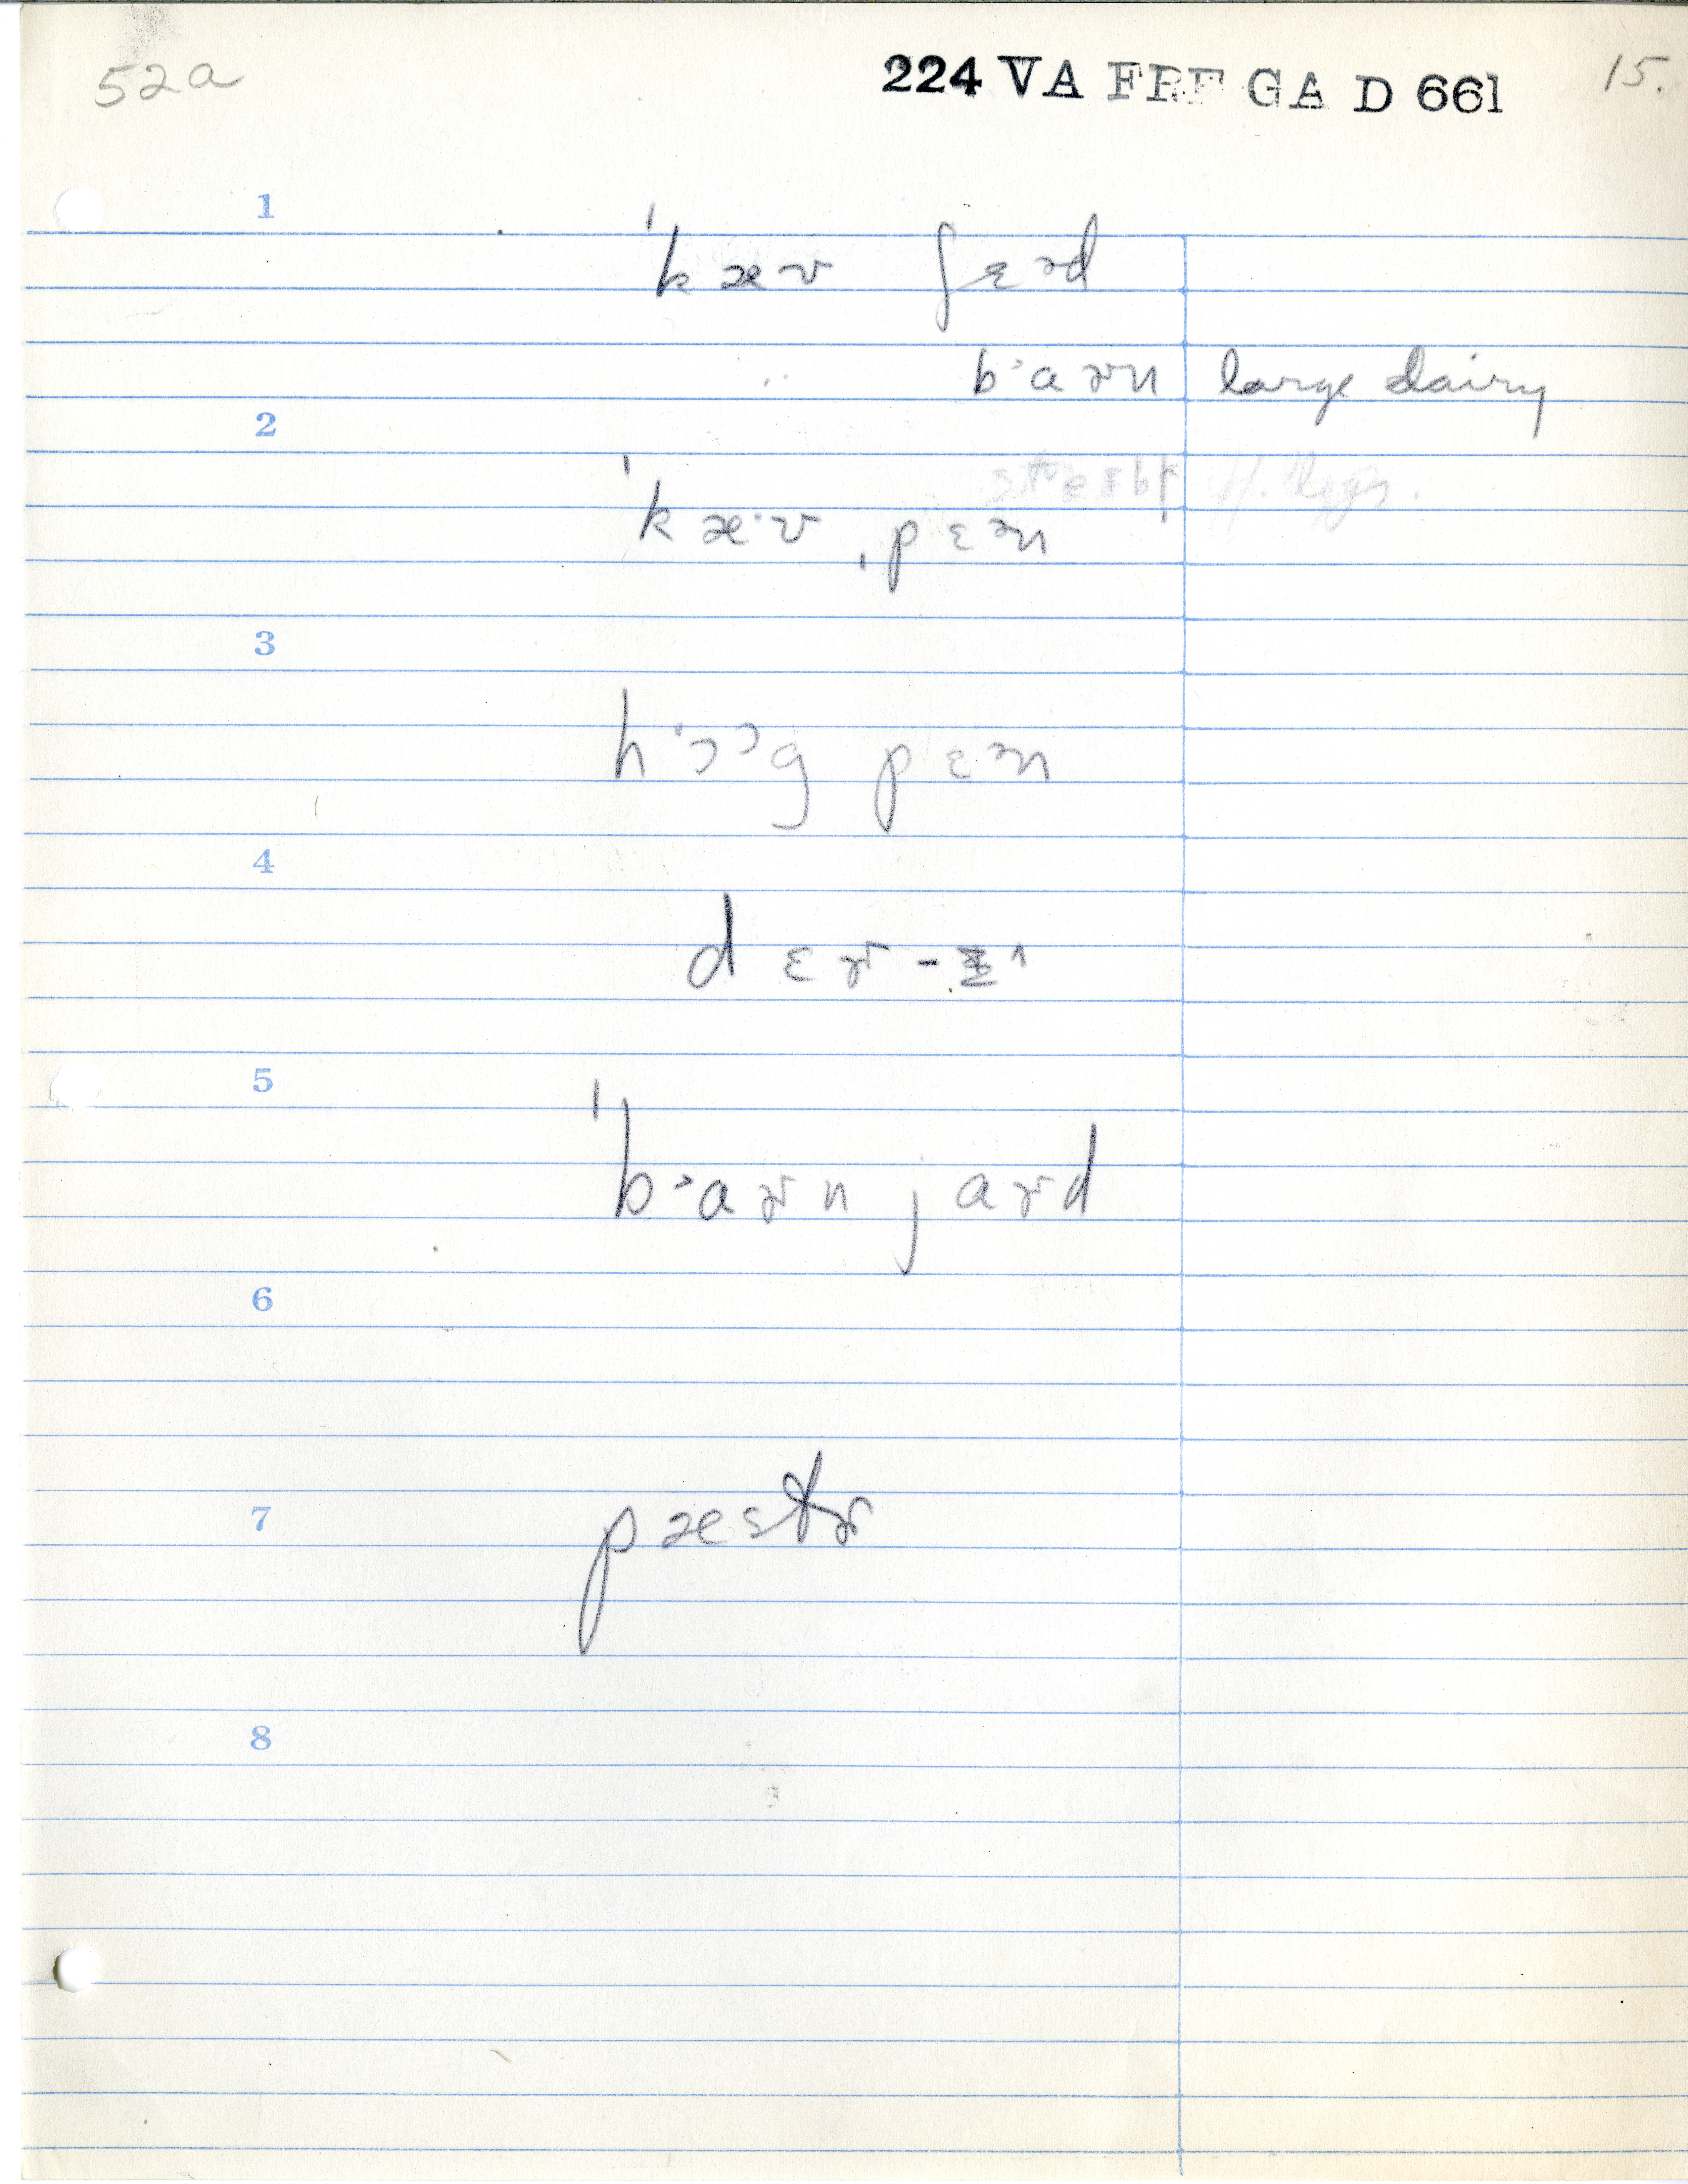 52a 224 VA FRE GA D 661 15.
1
ˈkæʊ ʃɛəd
bˑaɚn large dairy
2
ˈkæˑʊ ˌpɛən
3
hˑɔɔg pɛən
4
5
ˈbˑaɚn jaɚd
6
7
pæstɚ
8